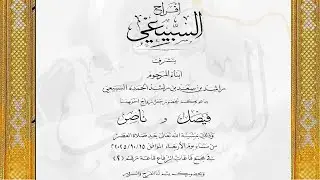 أفراح
السبيعي
يتشرف
أبناء المرحوم
راشد بن سعيد بن راشد الحمده السبيعي
بدعوتكم لحضور حفل زواج أخويهما
فيصل و ناصر
وذلك بمشيئة الله تعالى بعد صلاة العصر
من مساء يوم الأربعاء الموافق ٢٠٢٥/١٠/١٥
في مجمع قاعات الريفاع قاعة رقم (٢)